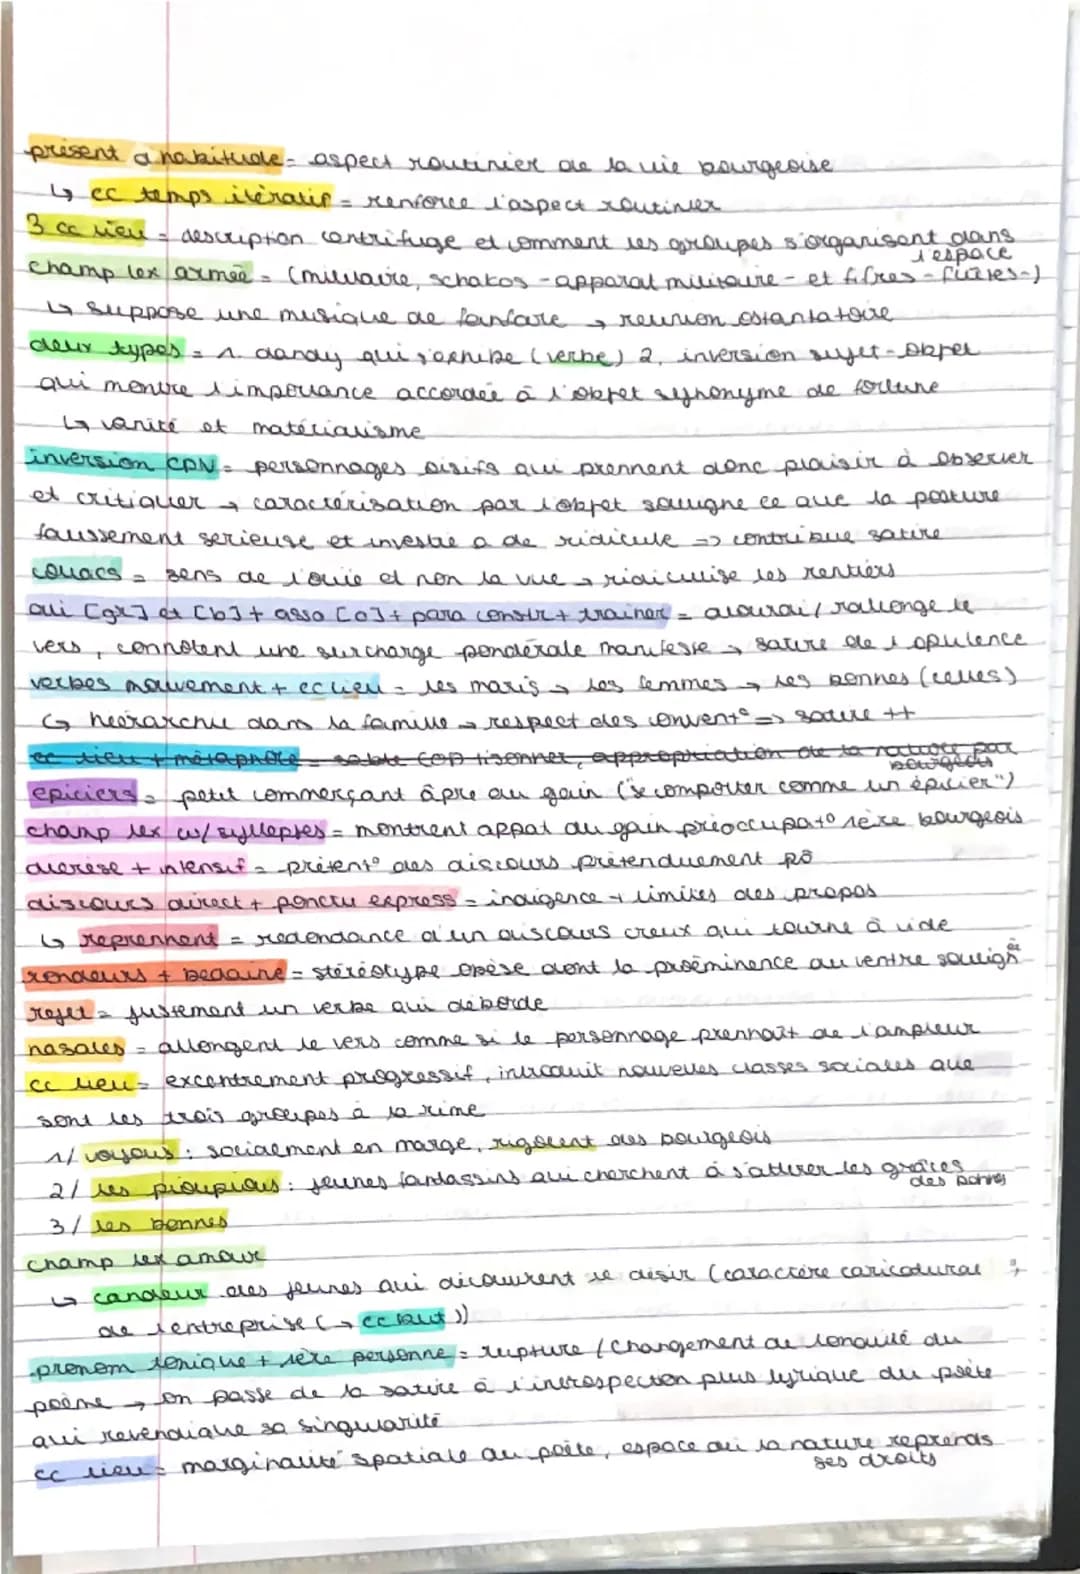 présent d habitude = aspect routinier de la vie bourgeoise
↳ cc temps itératif = renforce l'aspect routinier
3 cc lieu = description centrifuge et comment les groupes s'organisent dans l'espace
champ lex armée = (militaire, schakos - apparat militaire - et fifres - flûtes -)
↳ suppose une musique de fanfare → réunion ostentatoire
deux types = 1. dandy qui s'exhibe (verbe) 2. inversion sujet-objet
qui montre l'importance accordée à l'objet synonyme de fortune
↳ vanité et matérialisme
inversion CDN = personnages oisifs qui prennent donc plaisir à observer
et critiquer → caractérisation par l'objet souligne ce que la posture
faussement sérieuse et investie a de ridicule => contribue satire
couacs = sens de l'ouïe et non la vue → ridiculise les rentiers
alli [gR] et [b] + asso [o] + para constr + trainer = alourdi / rallonge le
vers, connotent une surcharge pondérale manifeste → satire de l opulence
verbes mouvement + cc lieu = les maris → les femmes → les bonnes (celles)
↳ hiérarchie dans la famille → respect des convent° => satire ++
cc lieu + métaphore = sable COD tisonner, appropriation de la nature par bourgeois
épiciers = petit commerçant âpre au gain ("se comporter comme un épicier")
champ lex w/ syllepses = montrent appat du gain préoccupat° 1ère bourgeois
diérèse + intensif = prétent° des discours prétenduement pô
discours direct + ponctu express = indigence + limites des propos
↳ reprennent = redondance d'un discours creux qui tourne à vide
rondeurs + bedaine = stéréotype obèse dont la proéminence du ventre soulign ée
rejet = justement un verbe qui déborde
nasales = allongent le vers comme si le personnage prennait de l'ampleur
cc lieu = excentrement progressif, introduit nouvelles classes sociales que
sont les trois groupes à la rime
1/ voyous : socialement en marge, rigolent des bourgeois
2/ les pioupious : jeunes fantassins qui cherchent à s'attirer les grâces des bonnes
3/ les bonnes
champ lex amour
↳ candeur des jeunes qui découvrent le désir (caractère caricatural
de l entreprise (→ cc but))
pronom tonique + 1ère personne = rupture / changement de tonalité du
poème → on passe de la satire à l'introspection plus lyrique du poète
qui revendique sa singularité
cc lieu = marginalité spatiale du poète, espace où la nature reprends ses droits